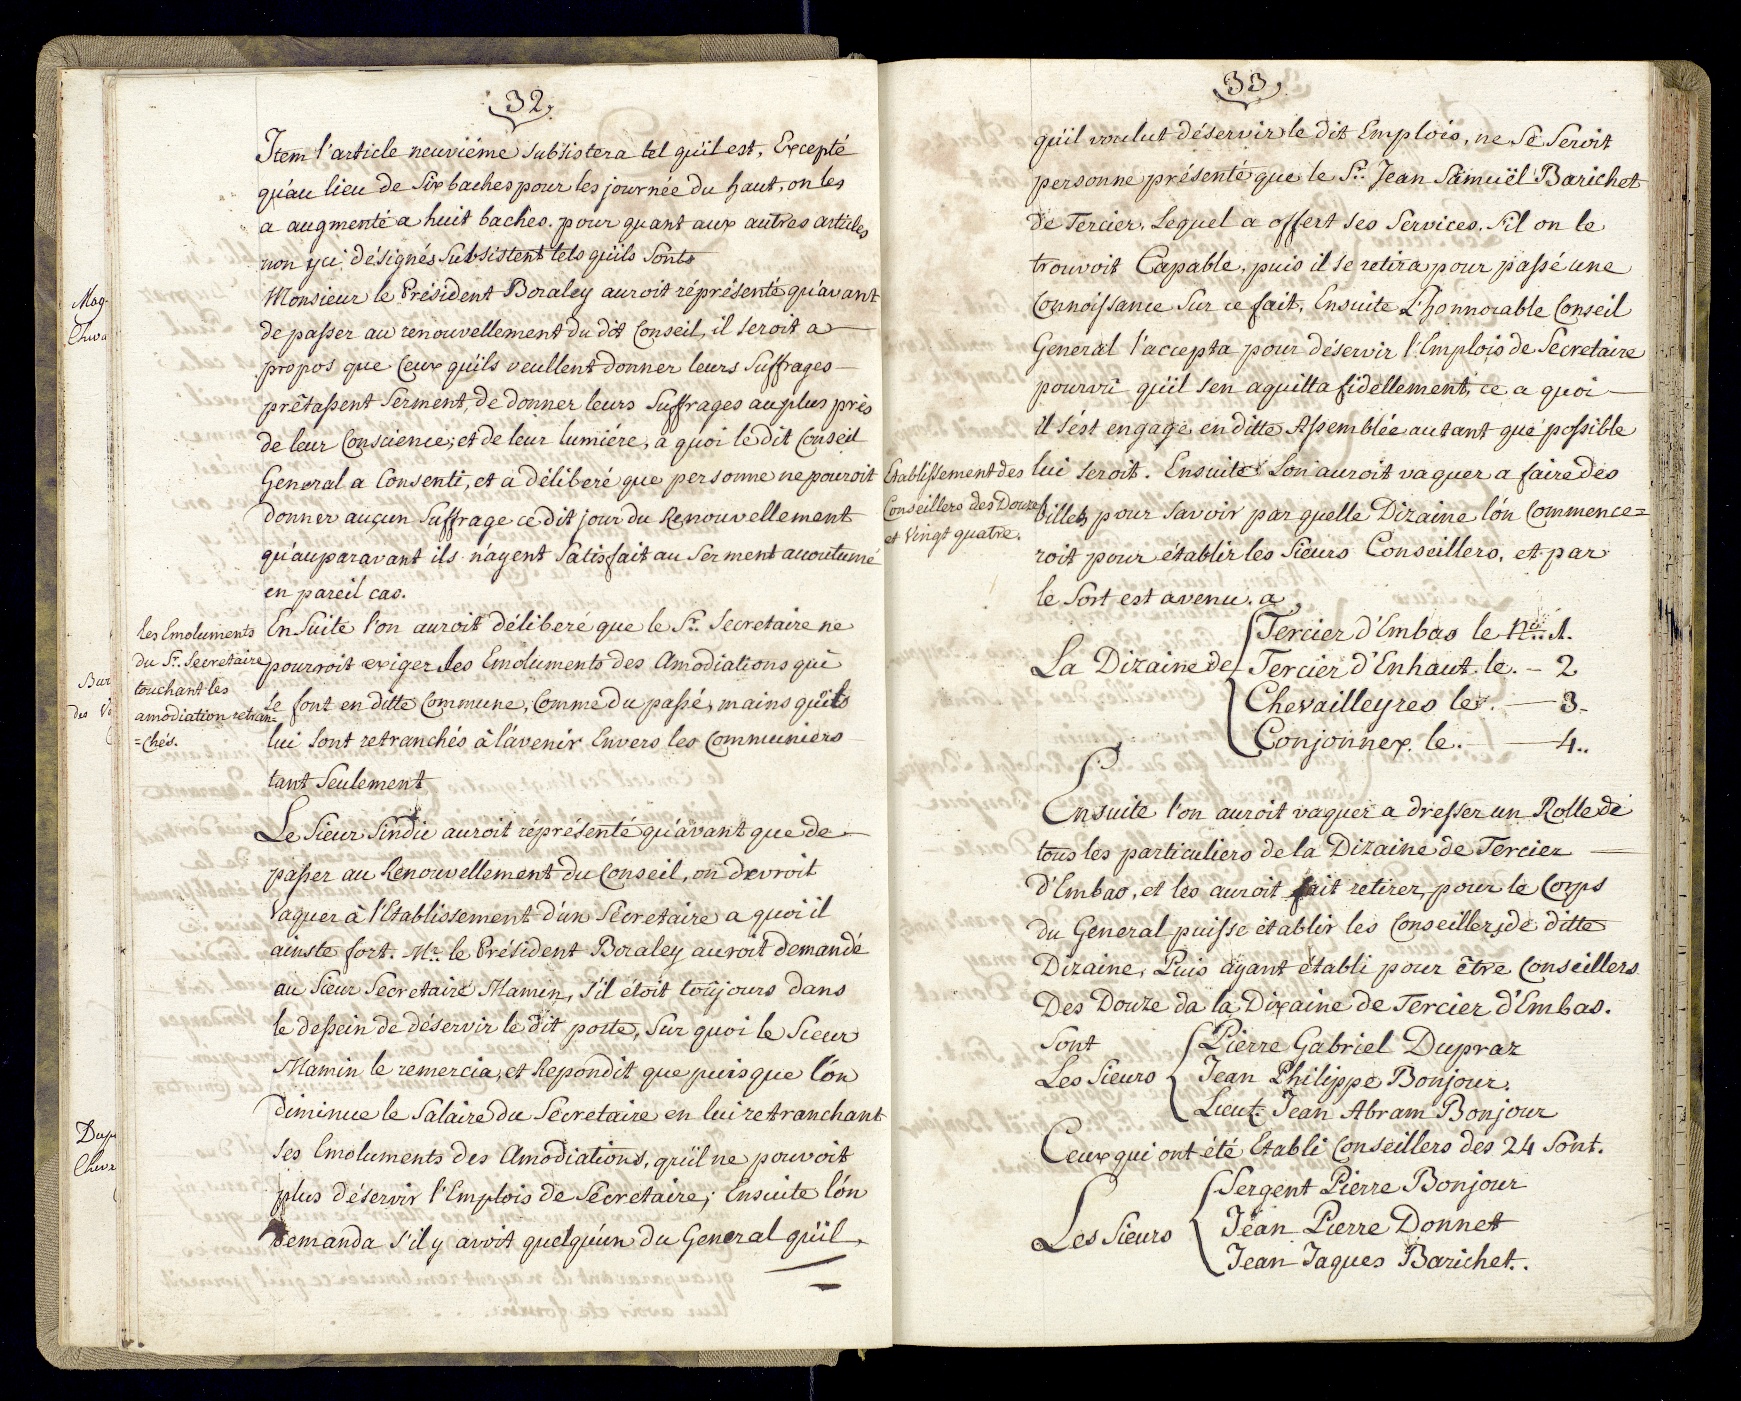 32.
Item l'article neuviéme subsistera tel qu'il est, Excepté
qu'au lieu de Six baches pour les journée du haut, on les
a augmenté a huit baches. pour quant aux autres articles
non yci désignés Subsistent tels qu'ils Sonts
Monsieur le Président Boraley auroit réprésenté qu'avant
de passer au renouvellement du dit Conseil, il seroit a
propos que Ceux qu'ils veullent donner leurs Suffrages
prêtassent Serment, de donner leurs Suffrages au plus près
de leur Conscience, et de leur lumiére, a quoi le dit Conseil
General a Consenti, et a déliberé que personne ne pouroit
donner aucun Suffrage ce dit jour du Renouvellement
qu'auparavant ils n'ayent Satisfait au Serment accoutumé
en pareil cas.
les Emoluments
du Sr. Secretaire
touchant les
amodiation retran=
=chés.
Ensuite l'on auroit déliberé que le Sr. Secretaire ne
pourroit exiger les Emoluments des Amodiations qui
Se font en ditte Commune, Comme du passé, mains qu'ils
lui sont retranchés à l'avenir Envers les Communiers
tant Seulement
Le Sieur Sindic auroit réprésenté qu'avant que de
passer au Renouvellement du Conseil, on devroit
vaquer à l'Etablissement d'un Secretaire a quoi il
ainste fort. Mr. le Président Boraley auroit demandé
au Sieur Secretaire Mamin, s'il étoit toujours dans
le dessein de déservir le dit poste, Sur quoi le Sieur
Mamin le remercia, et Repondit que puisque l'on
diminue le Salaire du Secretaire en lui retranchant
Ses Emoluments des Amodiations, qu'il ne pouvoit
plus déservir l'Emplois de Secretaire; Ensuite l'on
demanda s'il y avoit quelqu'un du General qu'il
33.
qu'il voulut déservir le dit Emplois, ne Se Seroit
personne présenté que le Sr. Jean Samuël Barichet
de Tercier, Lequel a offert ses Services, s'il on le
trouvoit Capable, puis il se retira pour passé une
Connoissance Sur ce fait, Ensuite L'honnorable Conseil
General l'accepta pour déservir l'Emplois de Secretaire
pourvû qu'il s'en aquitta fidellement, ce a quoi
il s'ést engagé en ditte Assemblée autant que possible
Etablissement des
Conseillers des Douze
et Vingt quatre.
lui seroit. Ensuite L'on auroit vaquer a faire des
billets pour savoir par quelle Dizaine l'on Commence=
roit pour établir les Sieurs Conseillers, et par
le Sort est avenu. a
La Dizaine de
Tercier d'Embas le No. 1.
Tercier d'Enhaut le. – 2
Chevailleyres le. — 3.
Conjonnex. le. — 4..
Ensuite l'on auroit vaquer a dresser un Rolle de
tous les particuliers de la Dizaine de Tercier
d'Embas, et les auroit fait retirer, pour le Corps
du General puisse établir les Conseillers de ditte
Dizaine, Puis ayant établi pour être Conseillers
Des Douze da la Dixaine de Tercier d'Embas.
Sont
Les Sieurs
Pierre Gabriel Dupraz
Jean Philippe Bonjour.
Lieut. Jean Abram Bonjour
Ceux qui ont été Etabli Conseillers des 24 Sont.
Les Sieurs
Sergent Pierre Bonjour
Jean Pierre Donnet
Jean Jaques Barichet.